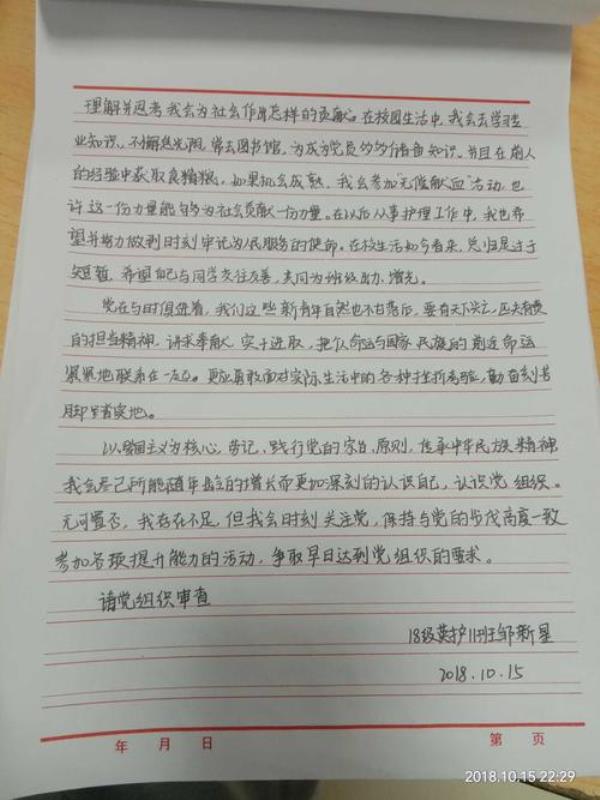 理解并思考我会为社会作出怎样的贡献。在校园生活中,我会去学习专
业知识,不懈怠光阴,常去图书馆,为成为党员多多储备知识。并且在前人
的经验中获取食精粮。如果机会成熟,我会参加“无偿献血”活动,也
许这一份力量能够为社会贡献一份力量。在以后从事护理工作中,我也希
望并努力做到时刻牢记为人民服务的使命。在校生活如今看来,总归是过于
短暂,希望自己与同学交往友善,共同为班级出力、增光。
党在与时俱进着,我们这些新青年自然也不甘落后,要有天下兴亡,匹夫有责
的担当精神,讲求奉献,实干进取,把个人命运与国家民族的前途命运
紧紧地联系在一起。更应勇敢面对实际生活中的各种挫折考验,勤奋刻苦
脚踏实地。
以爱国主义为核心,劳记、践行党的宗旨、原则,传承中华民族精神
我会尽己所能随年龄的增长而更加深刻的认识自己,认识党组织。
无可置否,我存在不足,但我会时刻关注党,保持与党的步伐高度一致
参加各项提升能力的活动,争取早日达到党组织的要求。
请党组织审查
18级英护11班邹新星
2018.10.15
年 月 日 第 页
2018.10.15 22:29